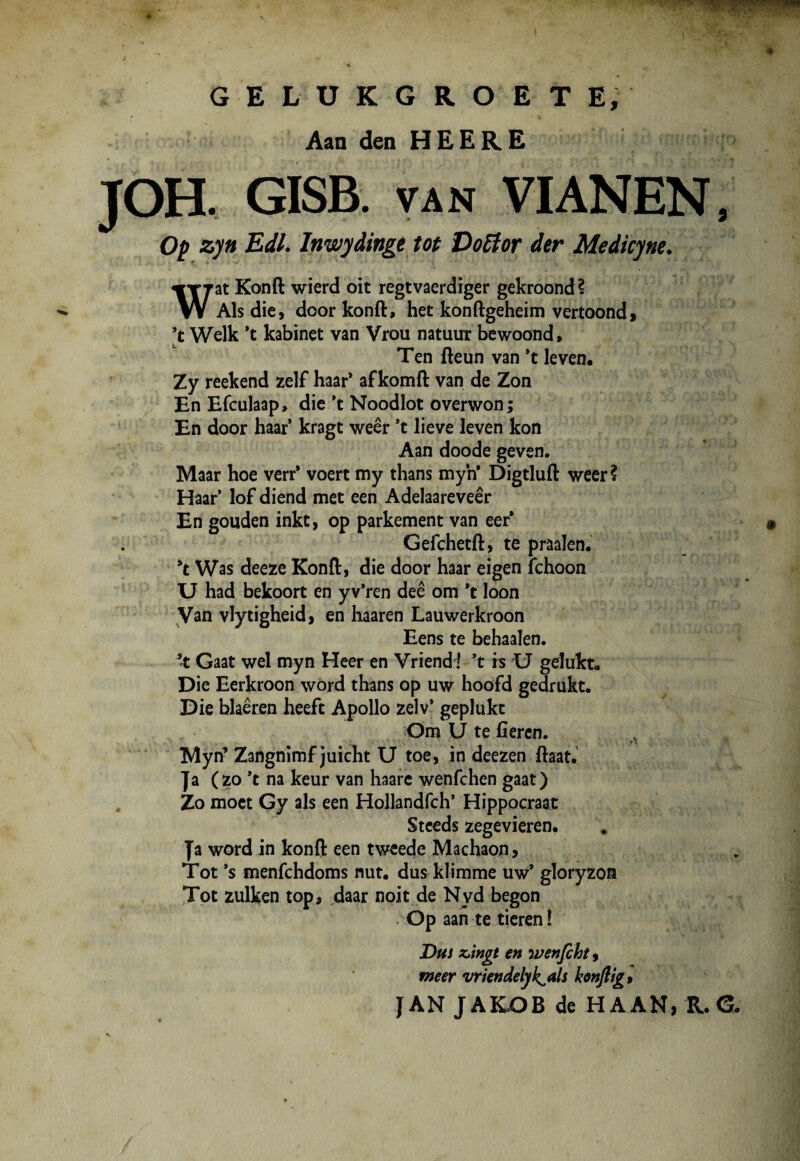 GELUKGROETE,
Aan den HEERE
JOH. GISB. VAN VIANEN,
Op zyn Edl. Inwydinge tot Doctor der Medicyne.
Wat Konſt wierd oit regtvaerdiger gekroond?
Als die, door konſt, het konſtgeheim vertoond,
't Welk 't kabinet van Vrou natuur bewoond,
Ten ſteun van 't leven.
Zy reekend zelf haar' afkomſt van de Zon
En Eſculaap, die 't Noodlot overwon;
En door haar' kragt weêr 't lieve leven kon
Aan doode geven.
Maar hoe verr' voert my thans myn' Digtluſt weer?
Haar' lof diend met een Adelaareveêr
En gouden inkt, op parkement van eer'
Geſchetſt, te praalen.
't Was deeze Konſt, die door haar eigen ſchoon
U had bekoort en yv'ren deê om 't loon
Van vlytigheid, en haaren Lauwerkroon
Eens te behaalen.
't Gaat wel myn Heer en Vriend! 't is U gelukt.
Die Eerkroon word thans op uw hoofd gedrukt.
Die blaêren heeft Apollo zelv' geplukt
Om U te ſieren.
Myn' Zangnimf juicht U toe, in deezen ſtaat.
Ja (zo 't na keur van haare wenſchen gaat)
Zo moet Gy als een Hollandſch' Hippocraat
Steeds zegevieren.
Ja word in konſt een tweede Machaon,
Tot 's menſchdoms nut. dus klimme uw' gloryzon
Tot zulken top, daar noit de Nyd begon
Op aan te tieren!
Dus zingt en wenſcht,
meer vriendelyk als konſtig,
JAN JAKOB de HAAN, R. G.